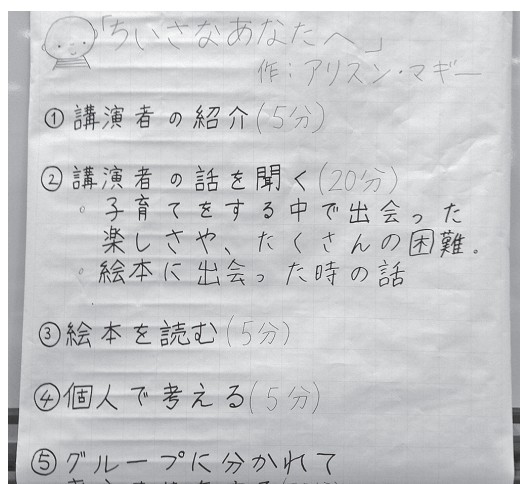 「ちいさなあなたへ」
作：アリスン・マギー
① 講演者の紹介(5分)
② 講演者の話を聞く(20分)
○ 子育てをする中で出会った
楽しさや、たくさんの困難。
○ 絵本に出会った時の話
③ 絵本を読む(5分)
④ 個人で考える(5分)
⑤ グループに分かれて